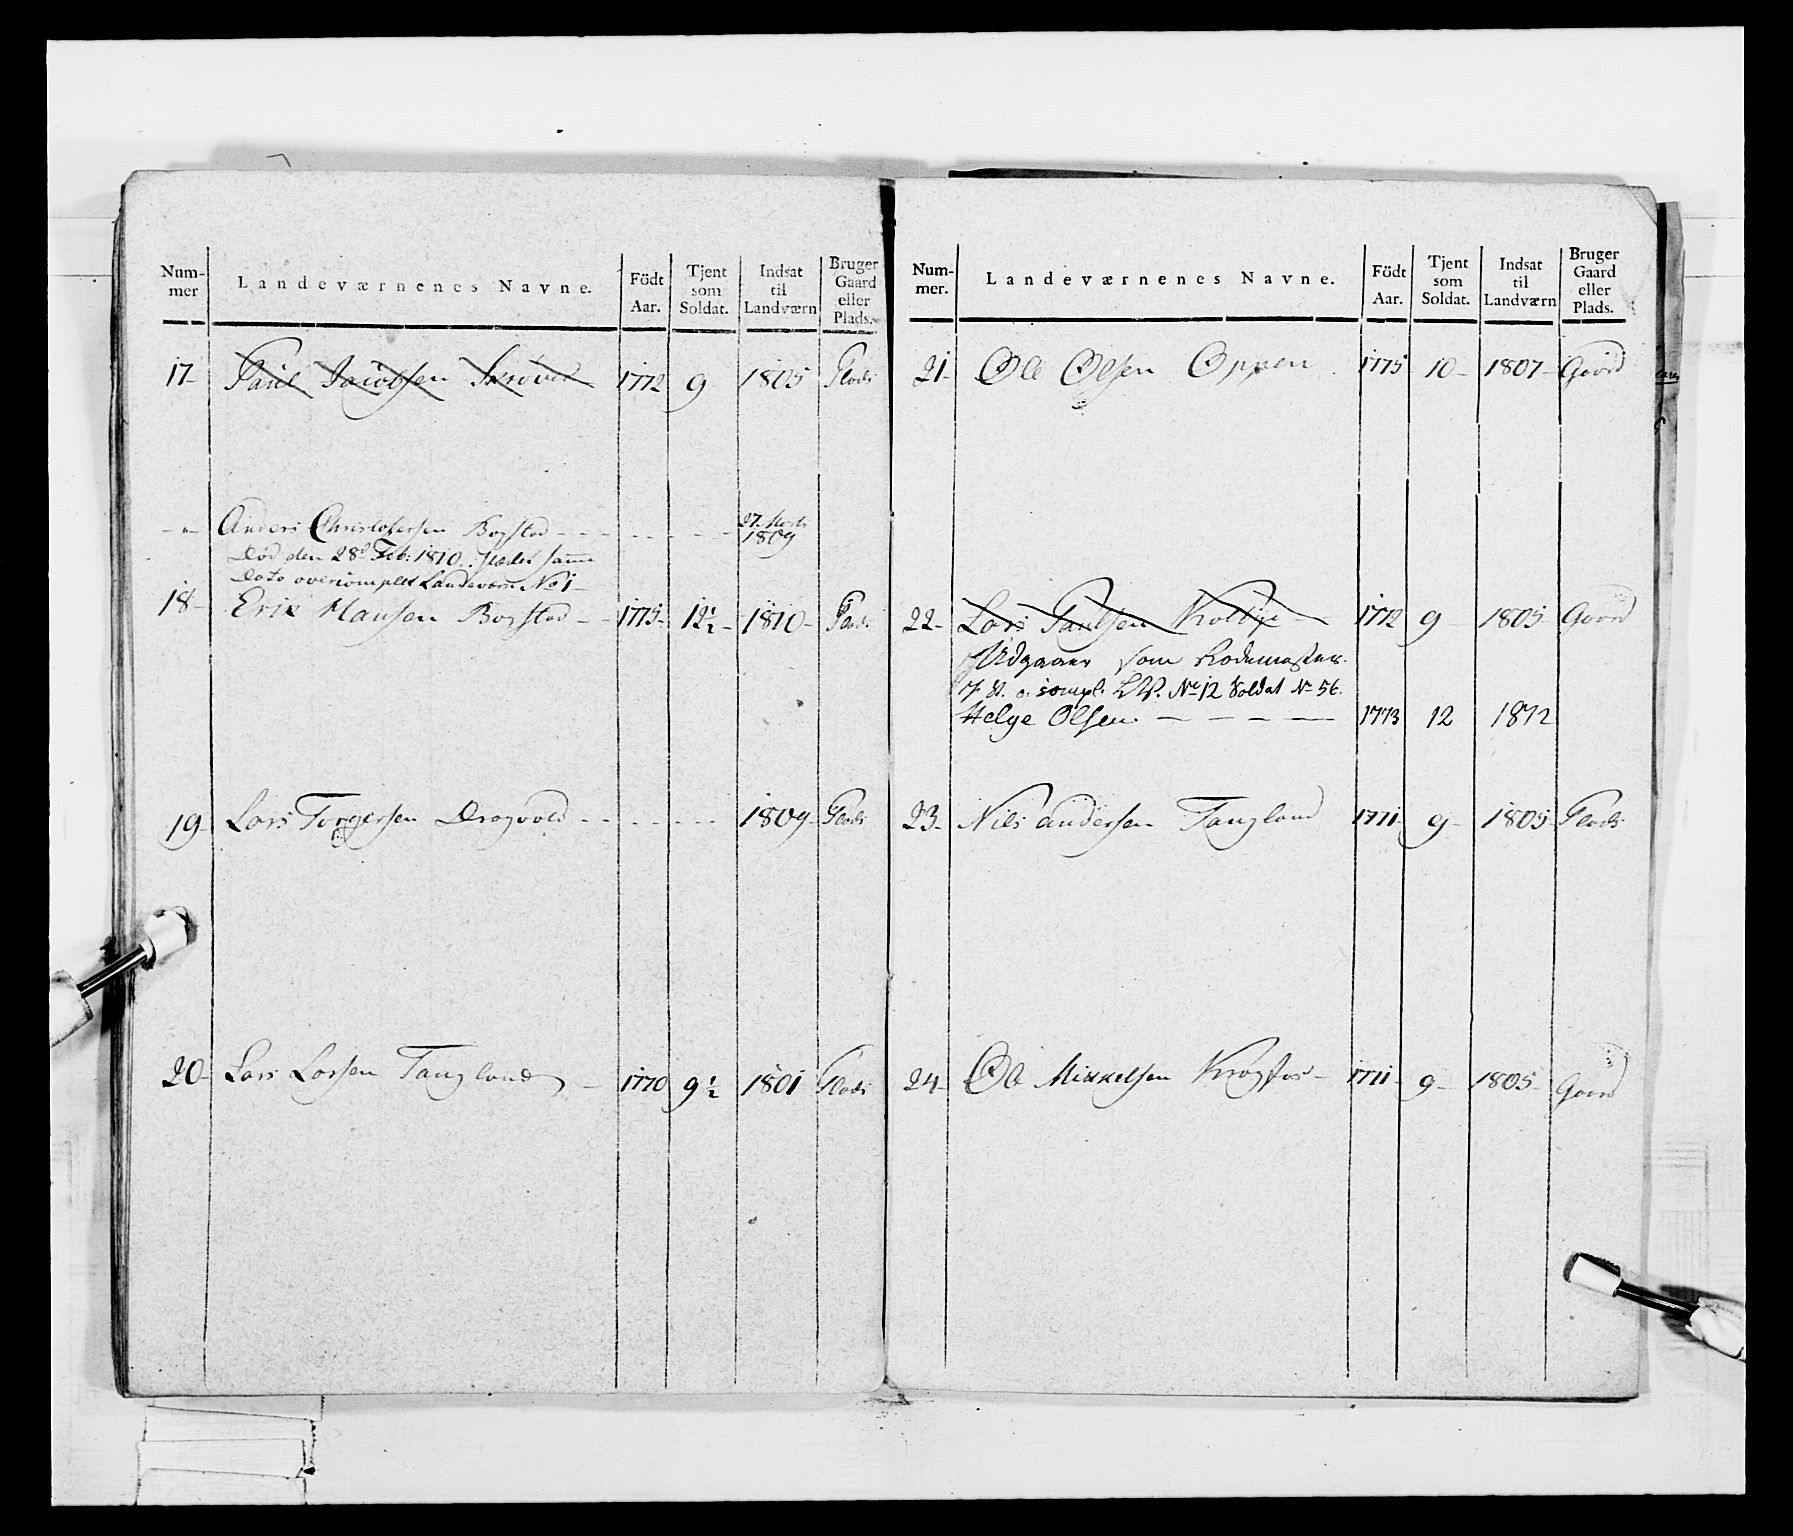 Num-
mer
Landeværnenes Navne.
Födt
Aar.
Tjent
som
Soldat.
Indsat
til
Landværn
Bruger
Gaard
eller
Plads.
17- Paul Jacobsen 1772 9 1805 Plads
-"- Anders Christofersen Bogstad - - - - - - - 27. Marts 1809
Död den 28d Feb: 1810. samme
Dato overcomplet Landeværn No 1
18- Erik Hansen Bogstad - - 1775- 12½- 1810- Plads
19- Lars Torgersen Dragvold - - - - - - 1809- Plads
20- Lars Larsen Tangland - 1770 9½ 1801 Plads
Num-
mer.
Landeværnenes Navne.
Födt
Aar.
Tjent
som
Soldat.
Indsat
til
Landværn
Bruger
Gaard
eller
Plads.
21- Ole Olsen Oppen 1775 10- 1807- Gaard
22- Lars Paulsen Kolbye - 1772 9- 1805 Gaard
Udgaaer som Rodemester.
J St. o. compl. LV. No 12 Soldat No 56.
Helge Olsen - - - - 1773 12 1812
23- Nils Andersen Tangland 1771- 9- 1805- Plads
24- Ole Mikkelsen 1771- 9- 1805- Gaard